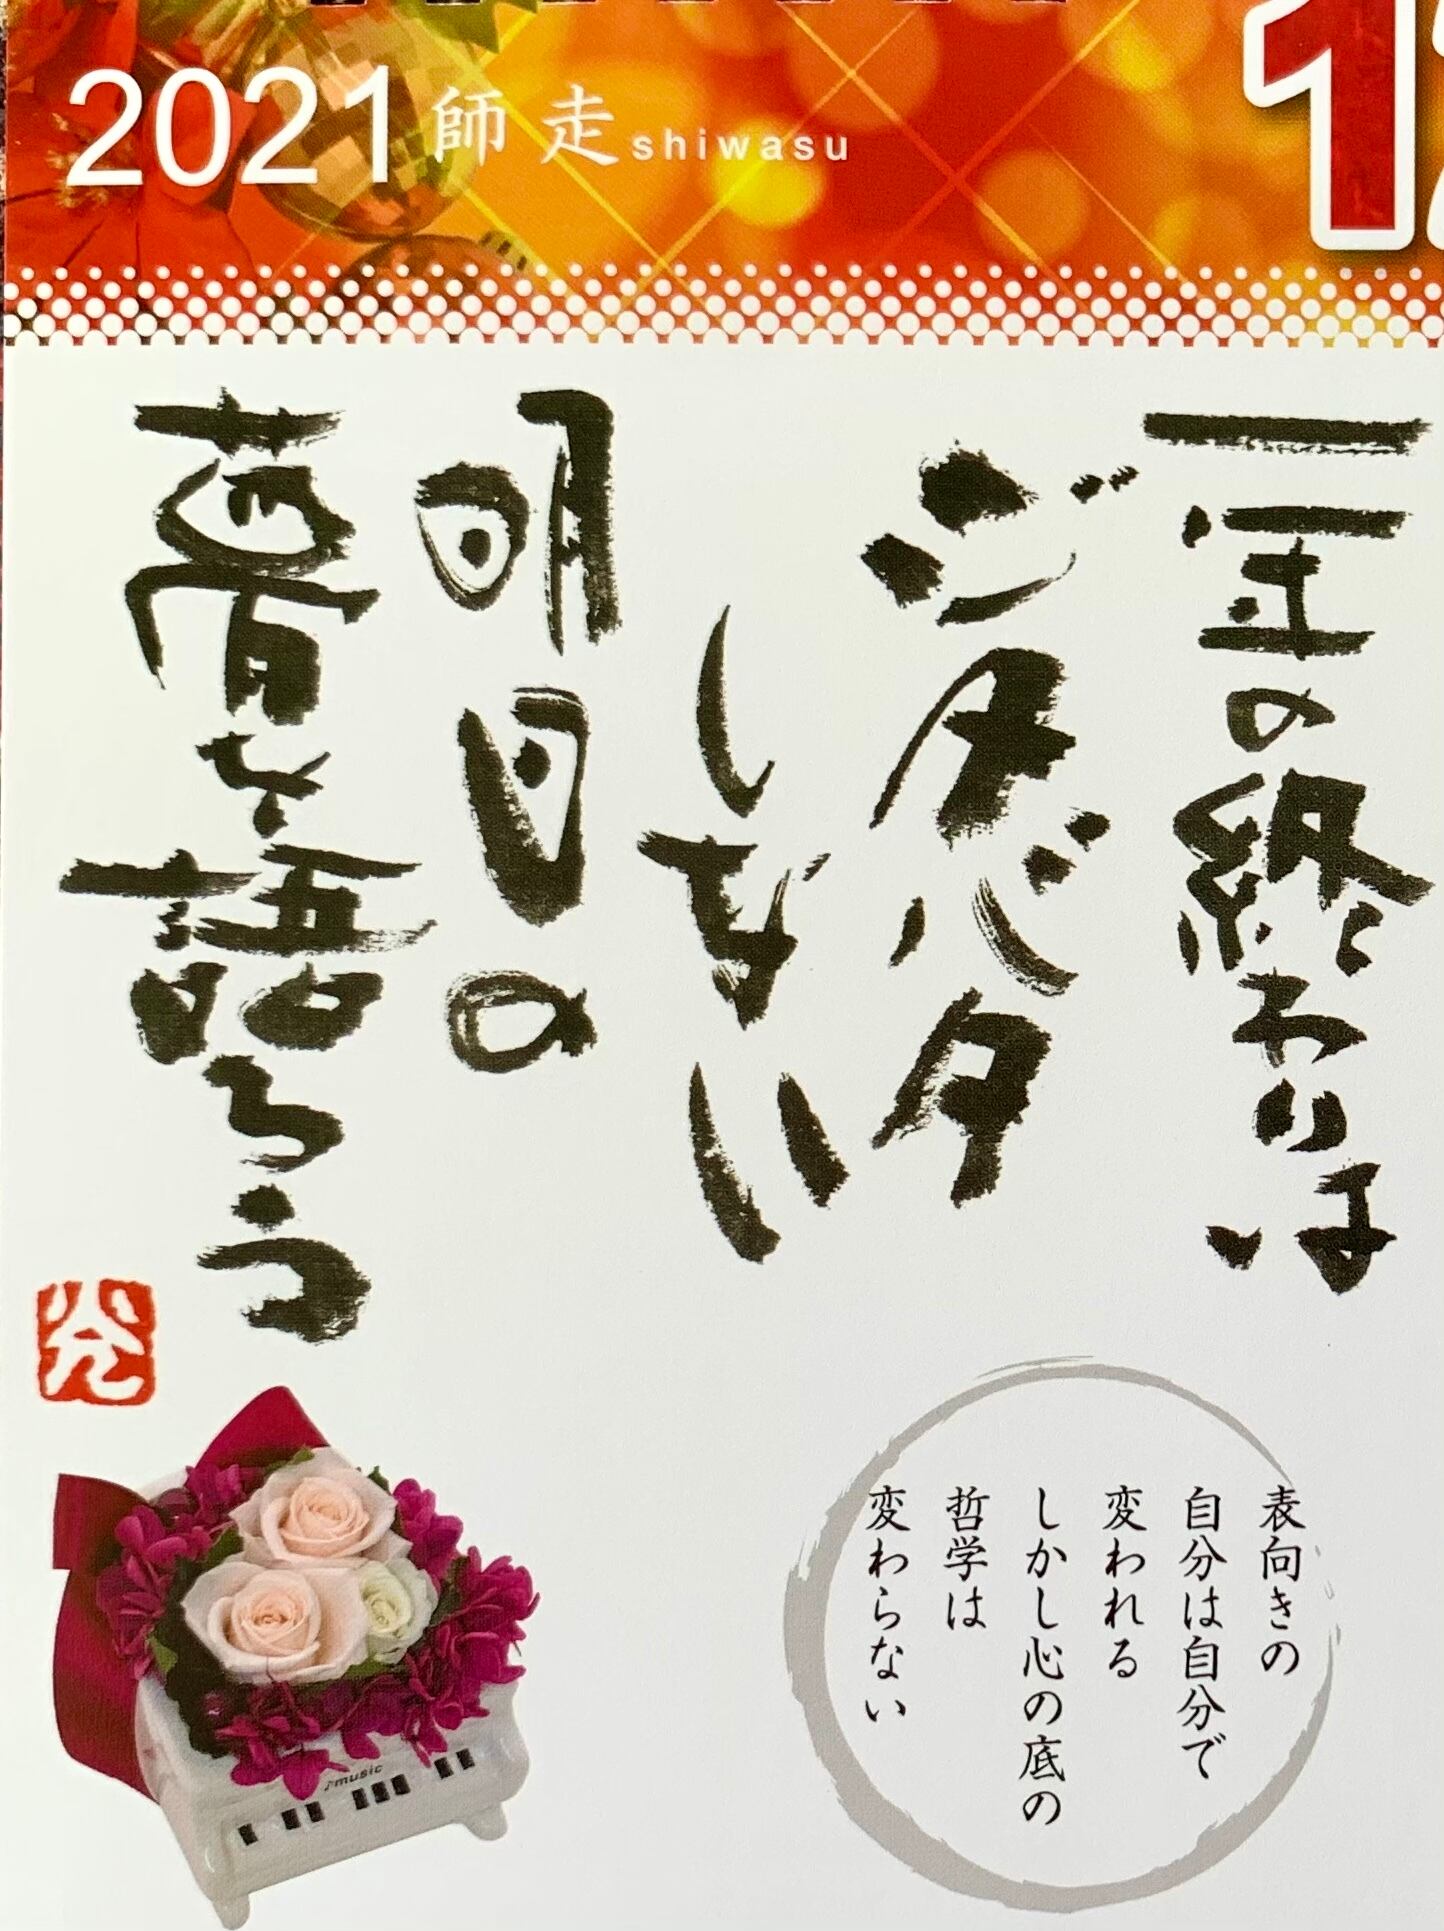 2021 師走 shiwasu
1
一年の終わりは
ジタバタ
しない
明日の
夢を語ろう
表向きの
自分は自分で
変われる
しかし心の底の
哲学は
変わらない
♪music